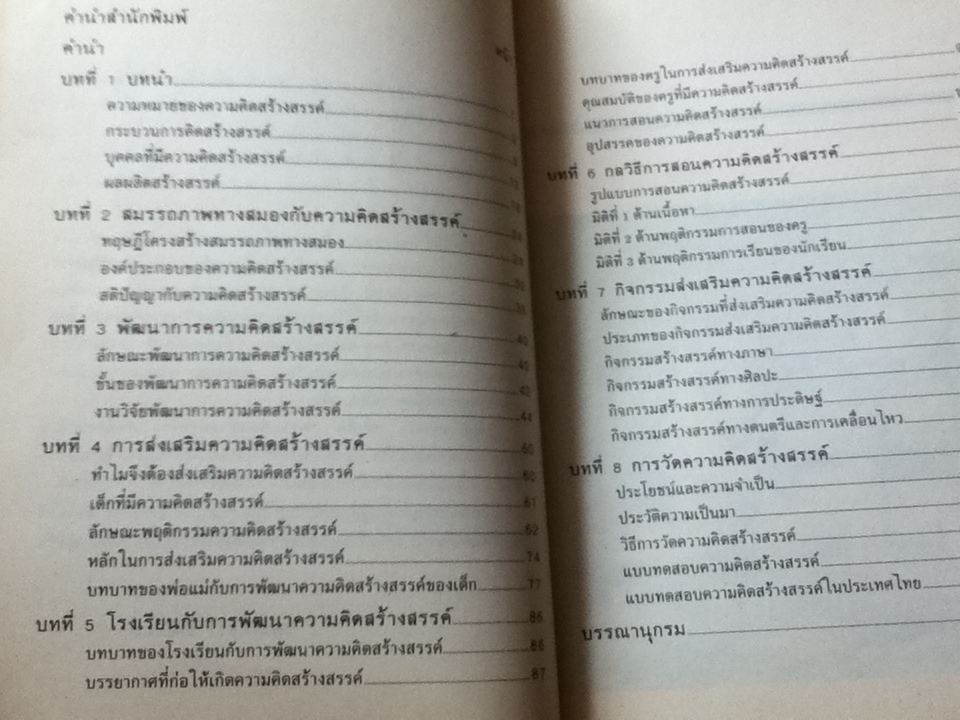 คำนำสำนักพิมพ์
คำนำ
บทที่ 1 บทนำ
ความหมายของความคิดสร้างสรรค์
กระบวนการคิดสร้างสรรค์
บุคคลที่มีความคิดสร้างสรรค์
ผลผลิตสร้างสรรค์
บทที่ 2 สมรรถภาพทางสมองกับความคิดสร้างสรรค์
ทฤษฎีโครงสร้างสมรรถภาพทางสมอง
องค์ประกอบของความคิดสร้างสรรค์
สติปัญญากับความคิดสร้างสรรค์
บทที่ 3 พัฒนาการความคิดสร้างสรรค์ 40
ลักษณะพัฒนาการความคิดสร้างสรรค์ 40
ขั้นของพัฒนาการความคิดสร้างสรรค์ 43
งานวิจัยพัฒนาการความคิดสร้างสรรค์ 44
บทที่ 4 การส่งเสริมความคิดสร้างสรรค์ 60
ทำไมจึงต้องส่งเสริมความคิดสร้างสรรค์ 60
เด็กที่มีความคิดสร้างสรรค์ 61
ลักษณะพฤติกรรมความคิดสร้างสรรค์ 62
หลักในการส่งเสริมความคิดสร้างสรรค์ 74
บทบาทของพ่อแม่กับการพัฒนาความคิดสร้างสรรค์ของเด็ก 77
บทที่ 5 โรงเรียนกับการพัฒนาความคิดสร้างสรรค์ 86
บทบาทของโรงเรียนกับการพัฒนาความคิดสร้างสรรค์ 86
บรรยากาศที่ก่อให้เกิดความคิดสร้างสรรค์ 87
บทบาทของครูในการส่งเสริมความคิดสร้างสรรค์
คุณสมบัติของครูที่มีความคิดสร้างสรรค์
แนวการสอนความคิดสร้างสรรค์
อุปสรรคของความคิดสร้างสรรค์
บทที่ 6 กลวิธีการสอนความคิดสร้างสรรค์
รูปแบบการสอนความคิดสร้างสรรค์
มิติที่ 1 ด้านเนื้อหา
มิติที่ 2 ด้านพฤติกรรมการสอนของครู
มิติที่ 3 ด้านพฤติกรรมการเรียนของนักเรียน
บทที่ 7 กิจกรรมส่งเสริมความคิดสร้างสรรค์
ลักษณะของกิจกรรมที่ส่งเสริมความคิดสร้างสรรค์
ประเภทของกิจกรรมส่งเสริมความคิดสร้างสรรค์
กิจกรรมสร้างสรรค์ทางภาษา
กิจกรรมสร้างสรรค์ทางศิลปะ
กิจกรรมสร้างสรรค์ทางการประดิษฐ์
กิจกรรมสร้างสรรค์ทางดนตรีและการเคลื่อนไหว
บทที่ 8 การวัดความคิดสร้างสรรค์
ประโยชน์และความจำเป็น
ประวัติความเป็นมา
วิธีการวัดความคิดสร้างสรรค์
แบบทดสอบความคิดสร้างสรรค์
แบบทดสอบความคิดสร้างสรรค์ในประเทศไทย
บรรณานุกรม